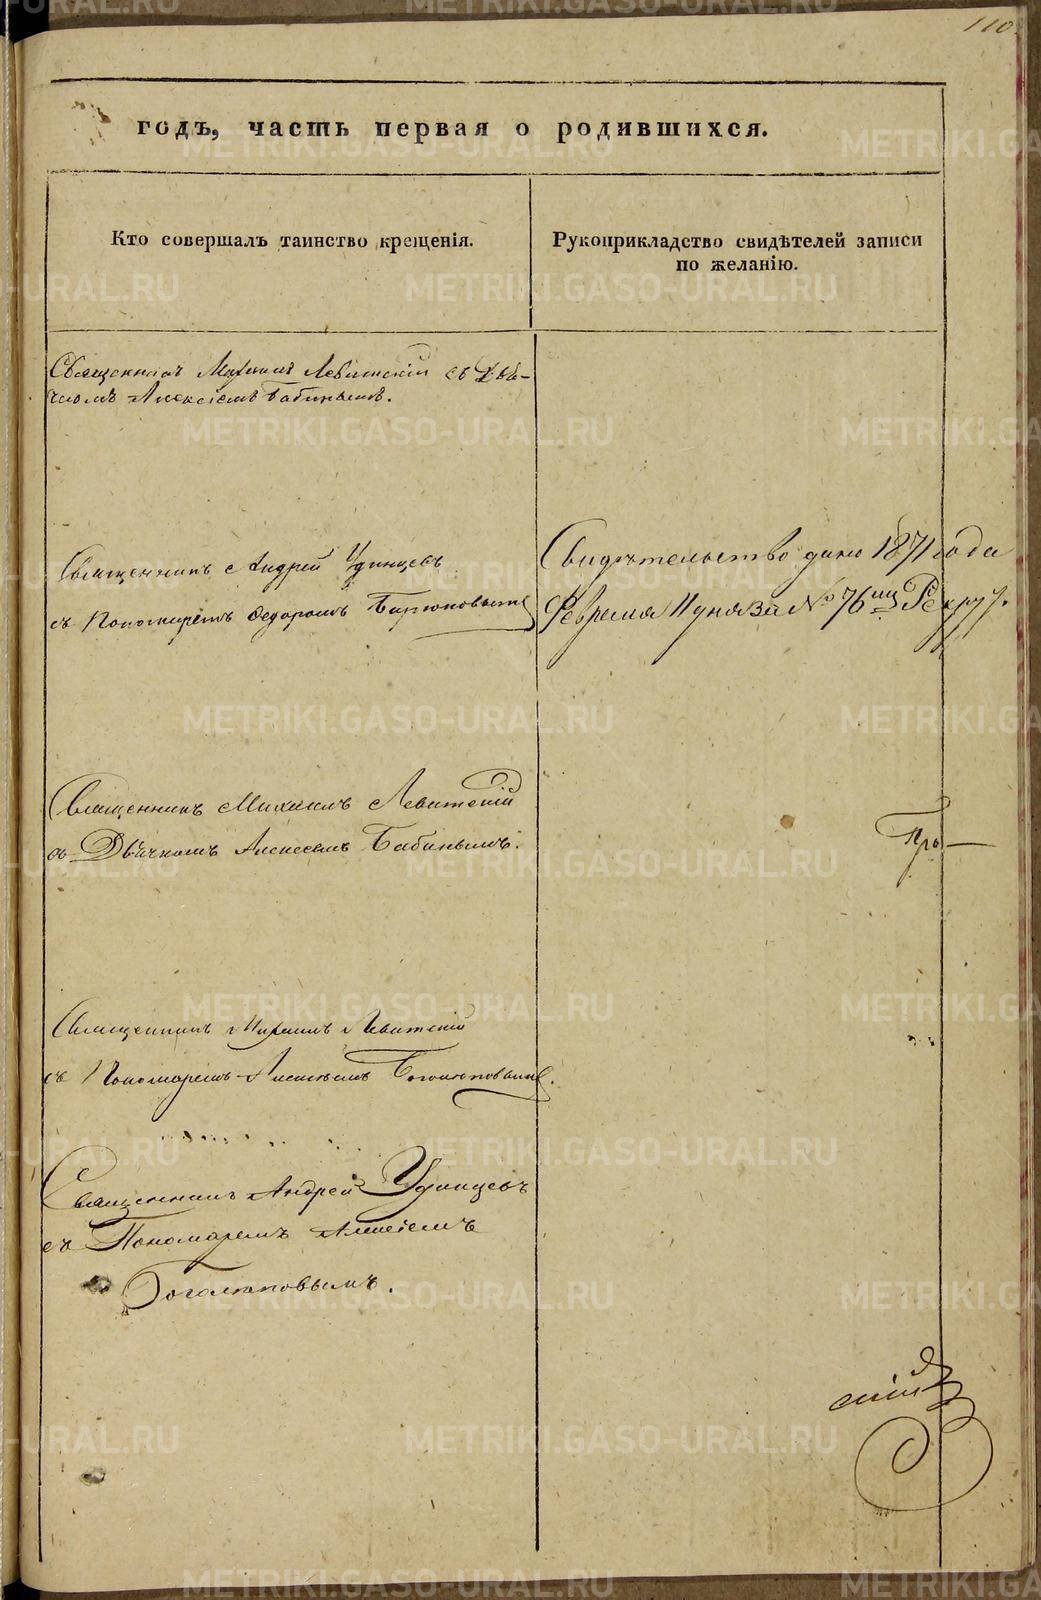 110.
годъ, часть первая о родившихся.
Кто совершалъ таинство крещенія.
Рукоприкладство свидѣтелей записи
по желанію.
Священникъ Михаилъ Левитскій съ Дья-
чкомъ Алексіемъ Бабинымъ.
Священникъ Андрей Удинцевъ
съ Пономаремъ Федоромъ Бирюковымъ
Свидѣтельство дано 1871 года
Февраля 11 дня за № 76
Священникъ Михаилъ Левитскій
съ Дьячкомъ Алексеемъ Бабинымъ.
Про—
Священникъ Михаилъ Левитскій
съ Пономаремъ Алексѣемъ Боголюповымъ.
Священникъ Андрей Удинцевъ
съ Пономаремъ Алексіемъ
Боголюповымъ.
METRIKI.GASO-URAL.RU